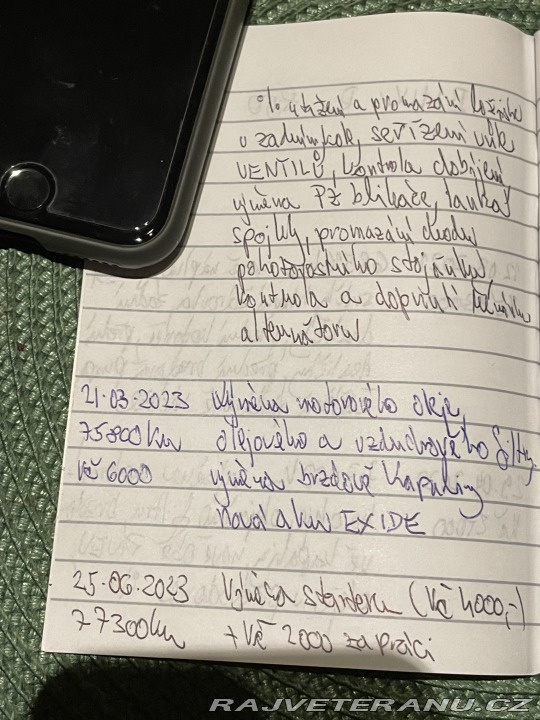 % utažení a promazání ložisk
v zadním kole, seřízení vůle
VENTILŮ, kontrola dobíjení
výměna PZ blikače, lanka
spojky, promazání chodu
pohotovostního stojánku
kontrola a dopnutí řemínku
alternátoru
21.03.2023 Výměna motorového oleje,
75800km olejového a vzduchového filtry.
Kč 6000 výměna brzdové kapaliny
nová aku EXIDE
25.06.2023 Výměna starteru (Kč 4000,-)
77300km + Kč 2000 za práci
RAJVETERANU.CZ